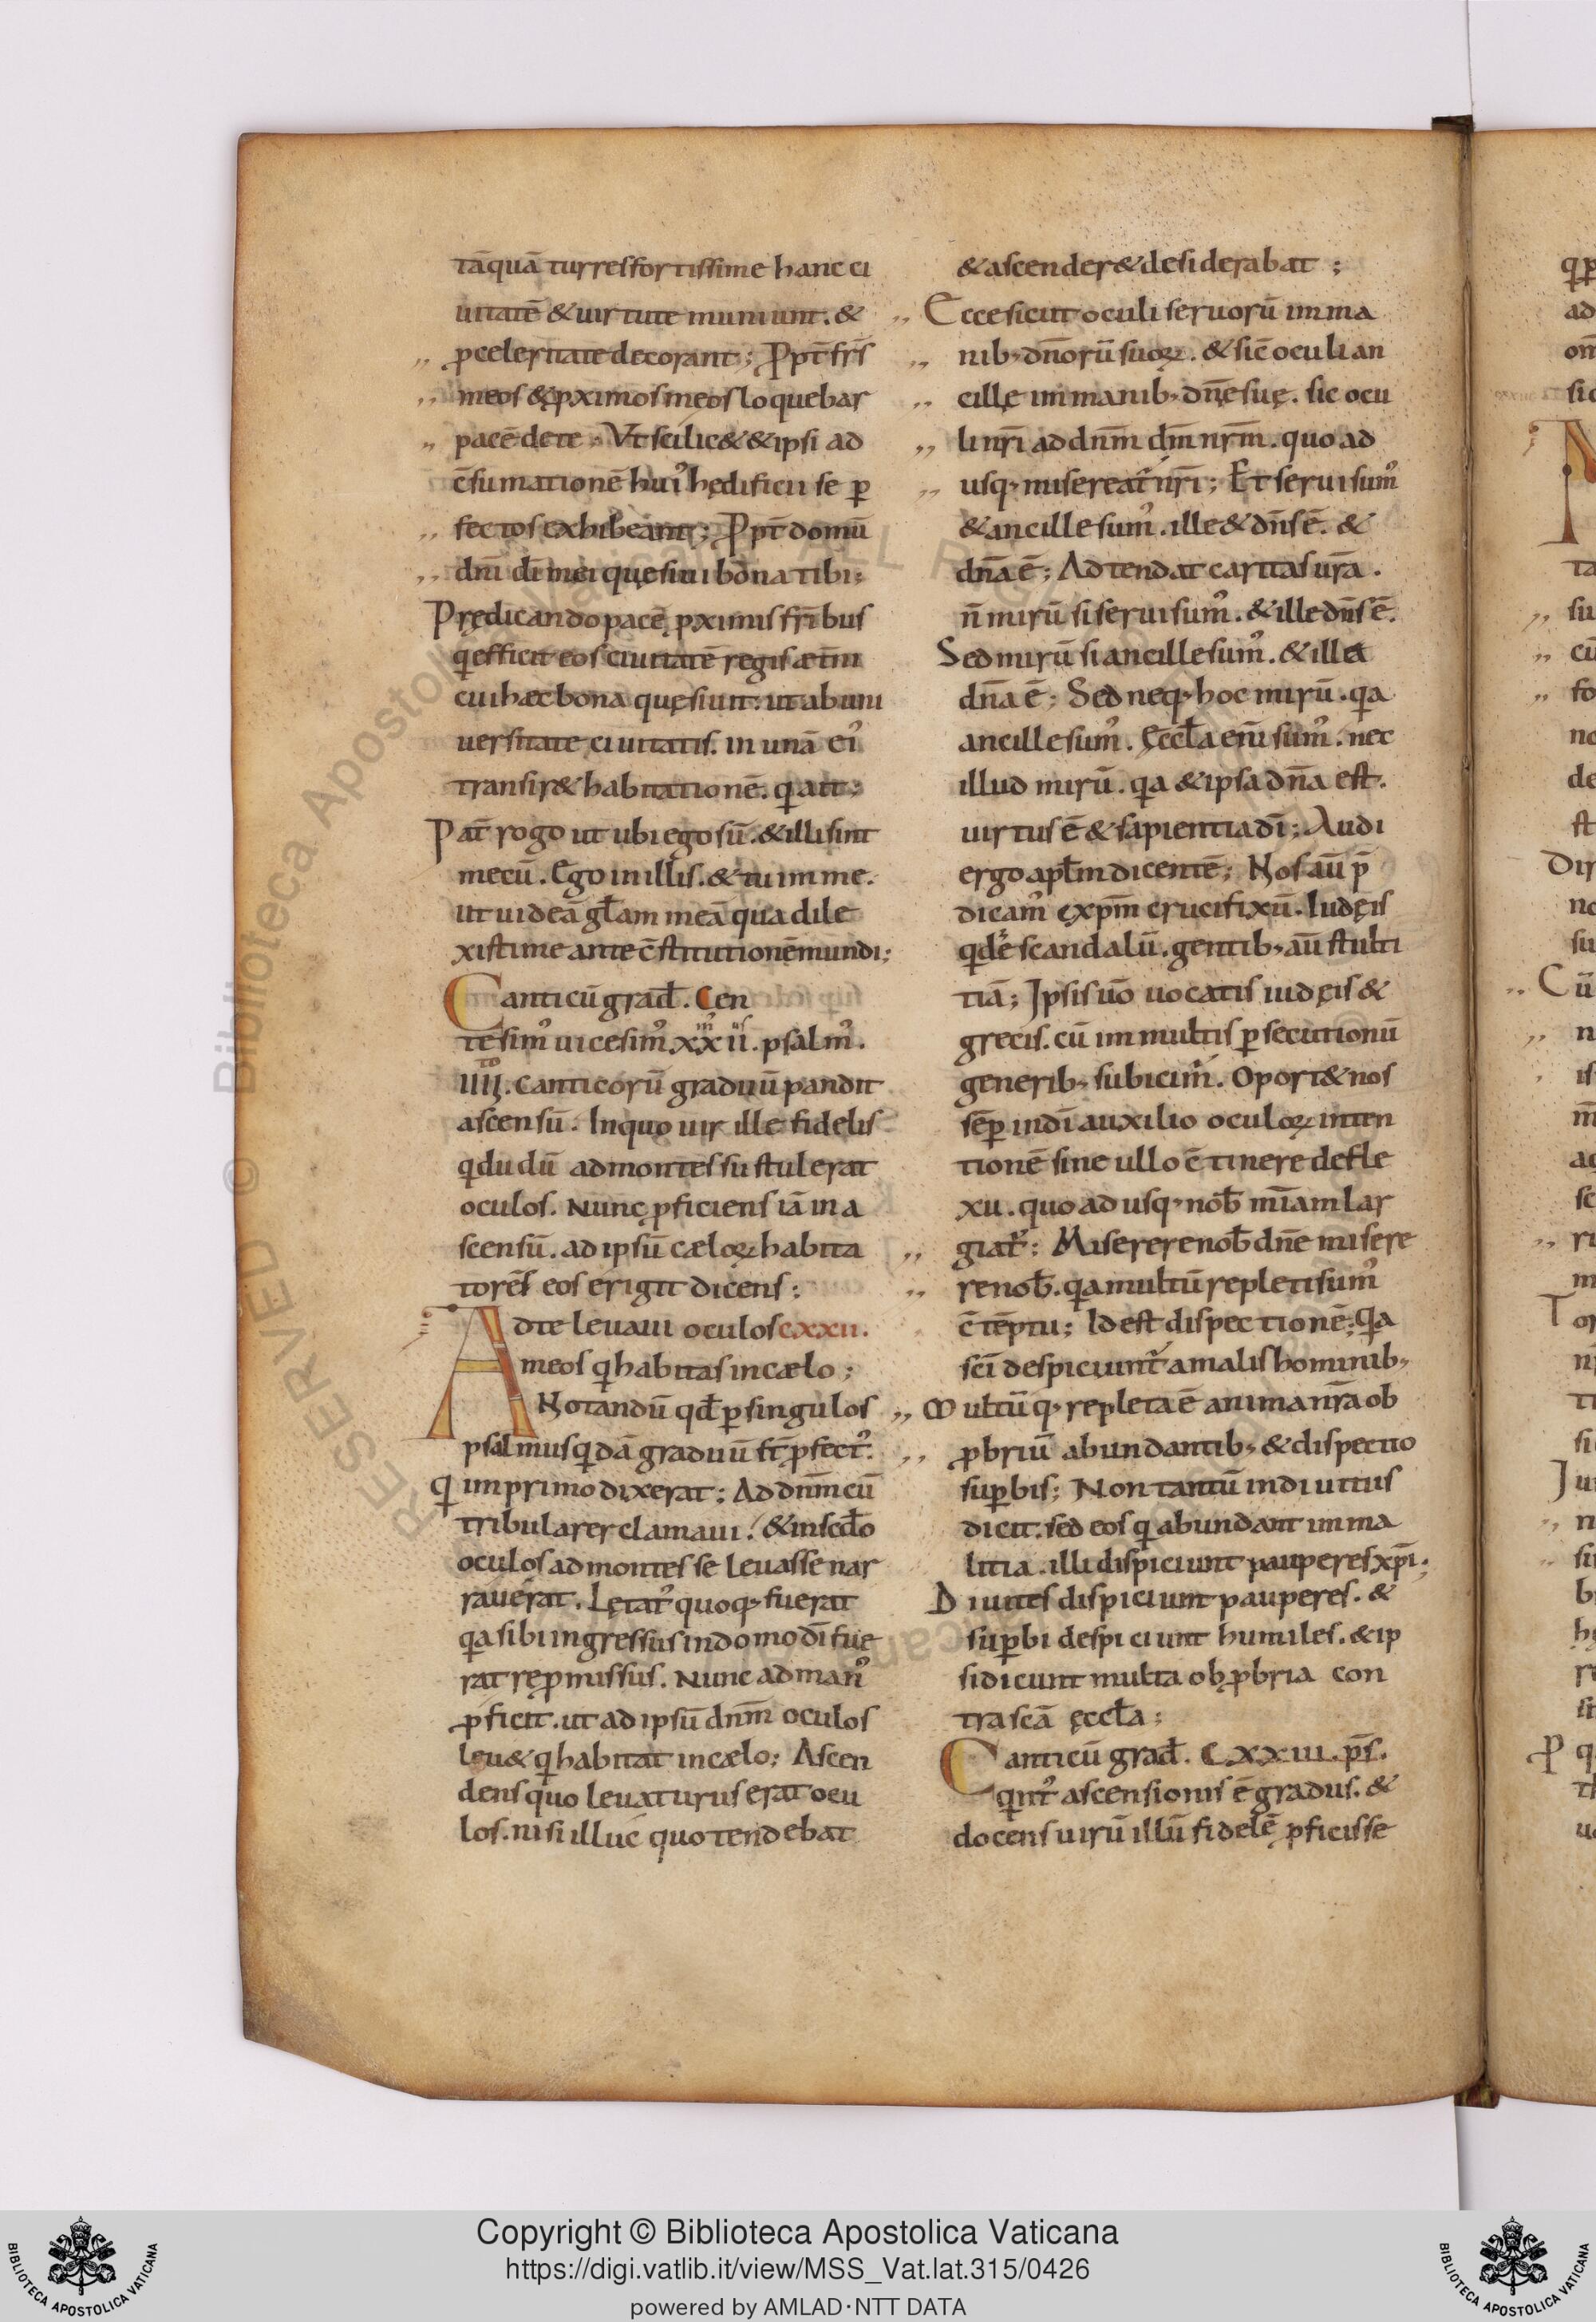 tāquā turres fortissime hanc ci
uitatē & uirtute muniunt. &
ꝓceleritate decorant; Ꝓpt̄ fr̄s
meos & ꝓximos meos loquebar
pacē de te. Vt scilic& & ipsi ad
c̄sumationē hui᾽ hędificii se ꝑ
fectos exhibeant; Ꝓpt̄ domū
dn̄i dī mei quęsiui bona tibi;
Prędicando pacē ꝓximis fr̄ibus
q efficit eos ciuitatē regis æt̄ni
cui hæc bona quęsiuit: ut ab uni
uersitate ciuitatis. in unā ei᾽
transir& habitationē. q ait;
Pat̄ rogo ut ubi ego sū. & illi sint
mecū. Ego in illis. & tu im me.
ut uideā gl̄am meā qua dile
xisti me ante c̄stitutionē mundi;
Canticū grad̄. Cen
tesim᾽ uicesim᾽. xxii. psalm᾽.
IIII. canticorū graduū pandit
ascensū. In quo uir ille fidelis
q dudū ad montes sustulerat
oculos. Nunc ꝓficiens iā in a
scensū. ad ipsū cæloꝝ habita
torēs eos erigit dicens;
Ad te leuaui oculos cxxii.
meos q habitas in cælo;
Notandū qd̄ ꝑ singulos
psalmus qdā graduū fit ꝓfect᾽.
Q im primo dixerat; Ad dn̄m cū
tribularer clamaui. & in scd̄o
oculos ad montes se leuasse nar
rauerat. Lętat᾽ quoq; fuerat
qa sibi ingressus in domo dī fue
rat reꝓmissus. Nunc ad man᾽
ꝓficit. ut ad ipsū dn̄m oculos
leu& q habitat in cælo; Ascen
dens quo leuaturus erat ocu
los. nisi illuc quo tendebat
& ascender& desiderabat;
Ecce sicut oculi seruorū im ma
nib; dn̄orū suoꝝ. & sic̄ oculi an
cillę im manib; dn̄e suę. sic ocu
li nr̄i ad dn̄m dm̄ nr̄m. quo ad
usq; misereat᾽ nr̄i; Et serui sum᾽
& ancille sum᾽. ille & dn̄s ē. &
dn̄a ē; Adtendat caritas ur̄a.
n̄ mirū si serui sum᾽. & ille dn̄s ē.
Sed mirū si ancille sum᾽. & illa
dn̄a ē; Sed neq; hoc mirū. qa
ancille sum᾽. ęccl̄a eni sum᾽. nec
illud mirū. qa & ipsa dn̄a est.
uirtus ē & sapientia dī; Audi
ergo apl̄m dicentē; Nos aū p̄
dicam᾽ xp̄m crucifixū. Iudęis
qdē scandalū. gentib; aū stulti
tiā; Ipsis uō uocatis iudęis &
grecis. cū im multis ꝑsecutionū
generib; subicim᾽. Oport& nos
sēꝑ in dī auxilio oculoꝝ inten
tionē sine ullo c̄tinere defle
xu. quo ad usq; nob̄ mīam lar
giat᾽; Miserere nob̄ dn̄e misere
re nob̄. qa multū repleti sum᾽
c̄tēptu; Id est dispectionē; qa
sc̄i despiciunt᾽ a malis hominib;
Multū q; repleta ē anima nr̄a ob
ꝓbriū abundantib; & dispectio
suꝑbis; Non tantū in diuitus
dicit. sed eos q abundant im ma
litia. illi dispiciunt pauperes xp̄i;
Diuites dispiciunt pauperes. &
suꝑbi despiciunt humiles. & ip
si dicunt multa obꝓbria con
tra sc̄ā ęccl̄a;
Canticū grad̄. CXXIII. ps̄.
qnt᾽ ascensionis ē gradus. &
docens uirū illū fidelē ꝓficisse
Copyright © Biblioteca Apostolica Vaticana
https://digi.vatlib.it/view/MSS_Vat.lat.315/0426
powered by AMLAD·NTT DATA